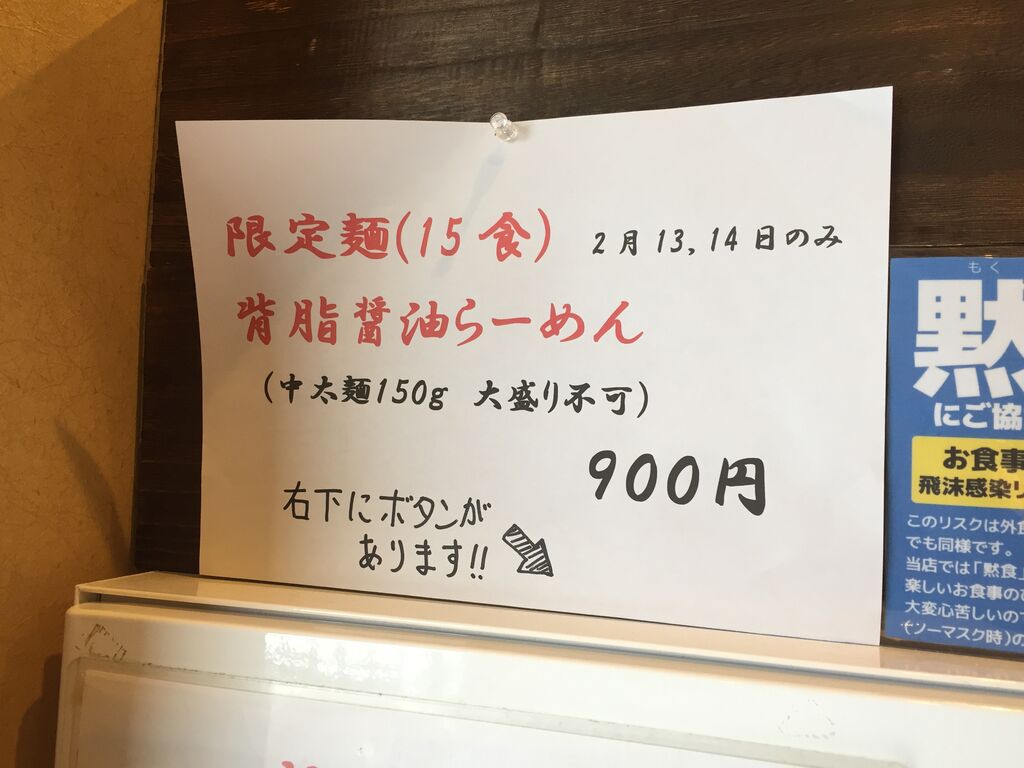 限定麺(15食) 2月13,14日のみ
背脂醤油らーめん
(中太麺150g 大盛り不可)
900円
右下にボタンが
あります!!
もく
黙
にご協
お食事
飛沫感染リ
このリスクは外食
でも同様です。
当店では「黙食」
楽しいお食事の
大変心苦しいので
(ノーマスク時)の